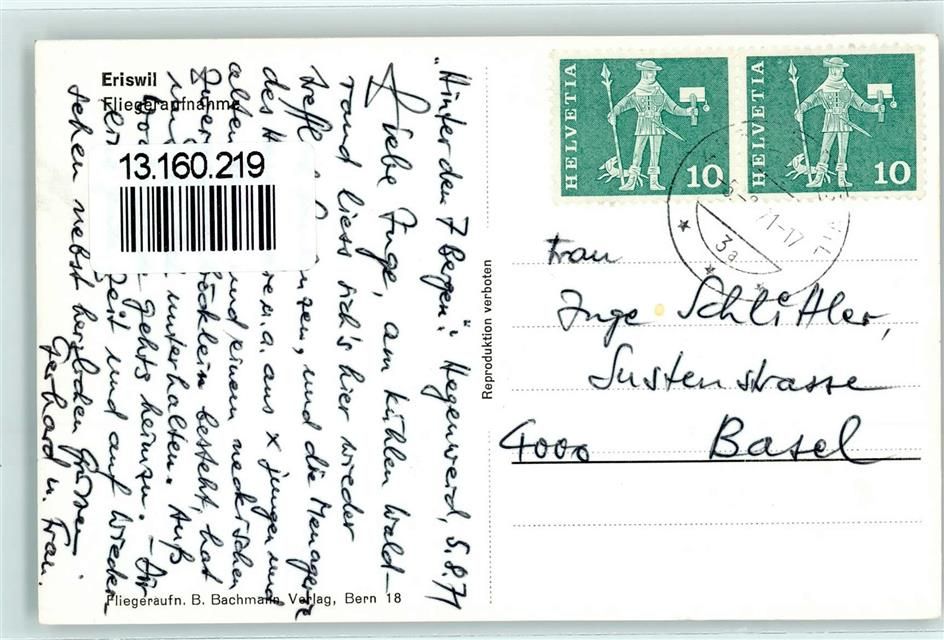 Eriswil
Fliegeraufnahme
13.160.219
"Hinter den 7 Bergen": Hegenweid, 5.8.71
Liebe Inge, am kühlen Wald-
rand liess sich's hier wieder
treffl und die Menagerie
des H a. aus x jungen und
alten und einem neckischen
besteht, hat
unterhalten. Auf
gehts heimzu. - Dir
Zeit und auf Wieder-
sehen nebst herzlichen Grüssen
Gerhard u. Frau.
Fliegeraufn. B. Bachmann Verlag, Bern 18
Reproduktion verboten
HELVETIA 10
HELVETIA 10
71-17
3a
Frau
Inge Schlittler,
Sustenstrasse
4000 Basel